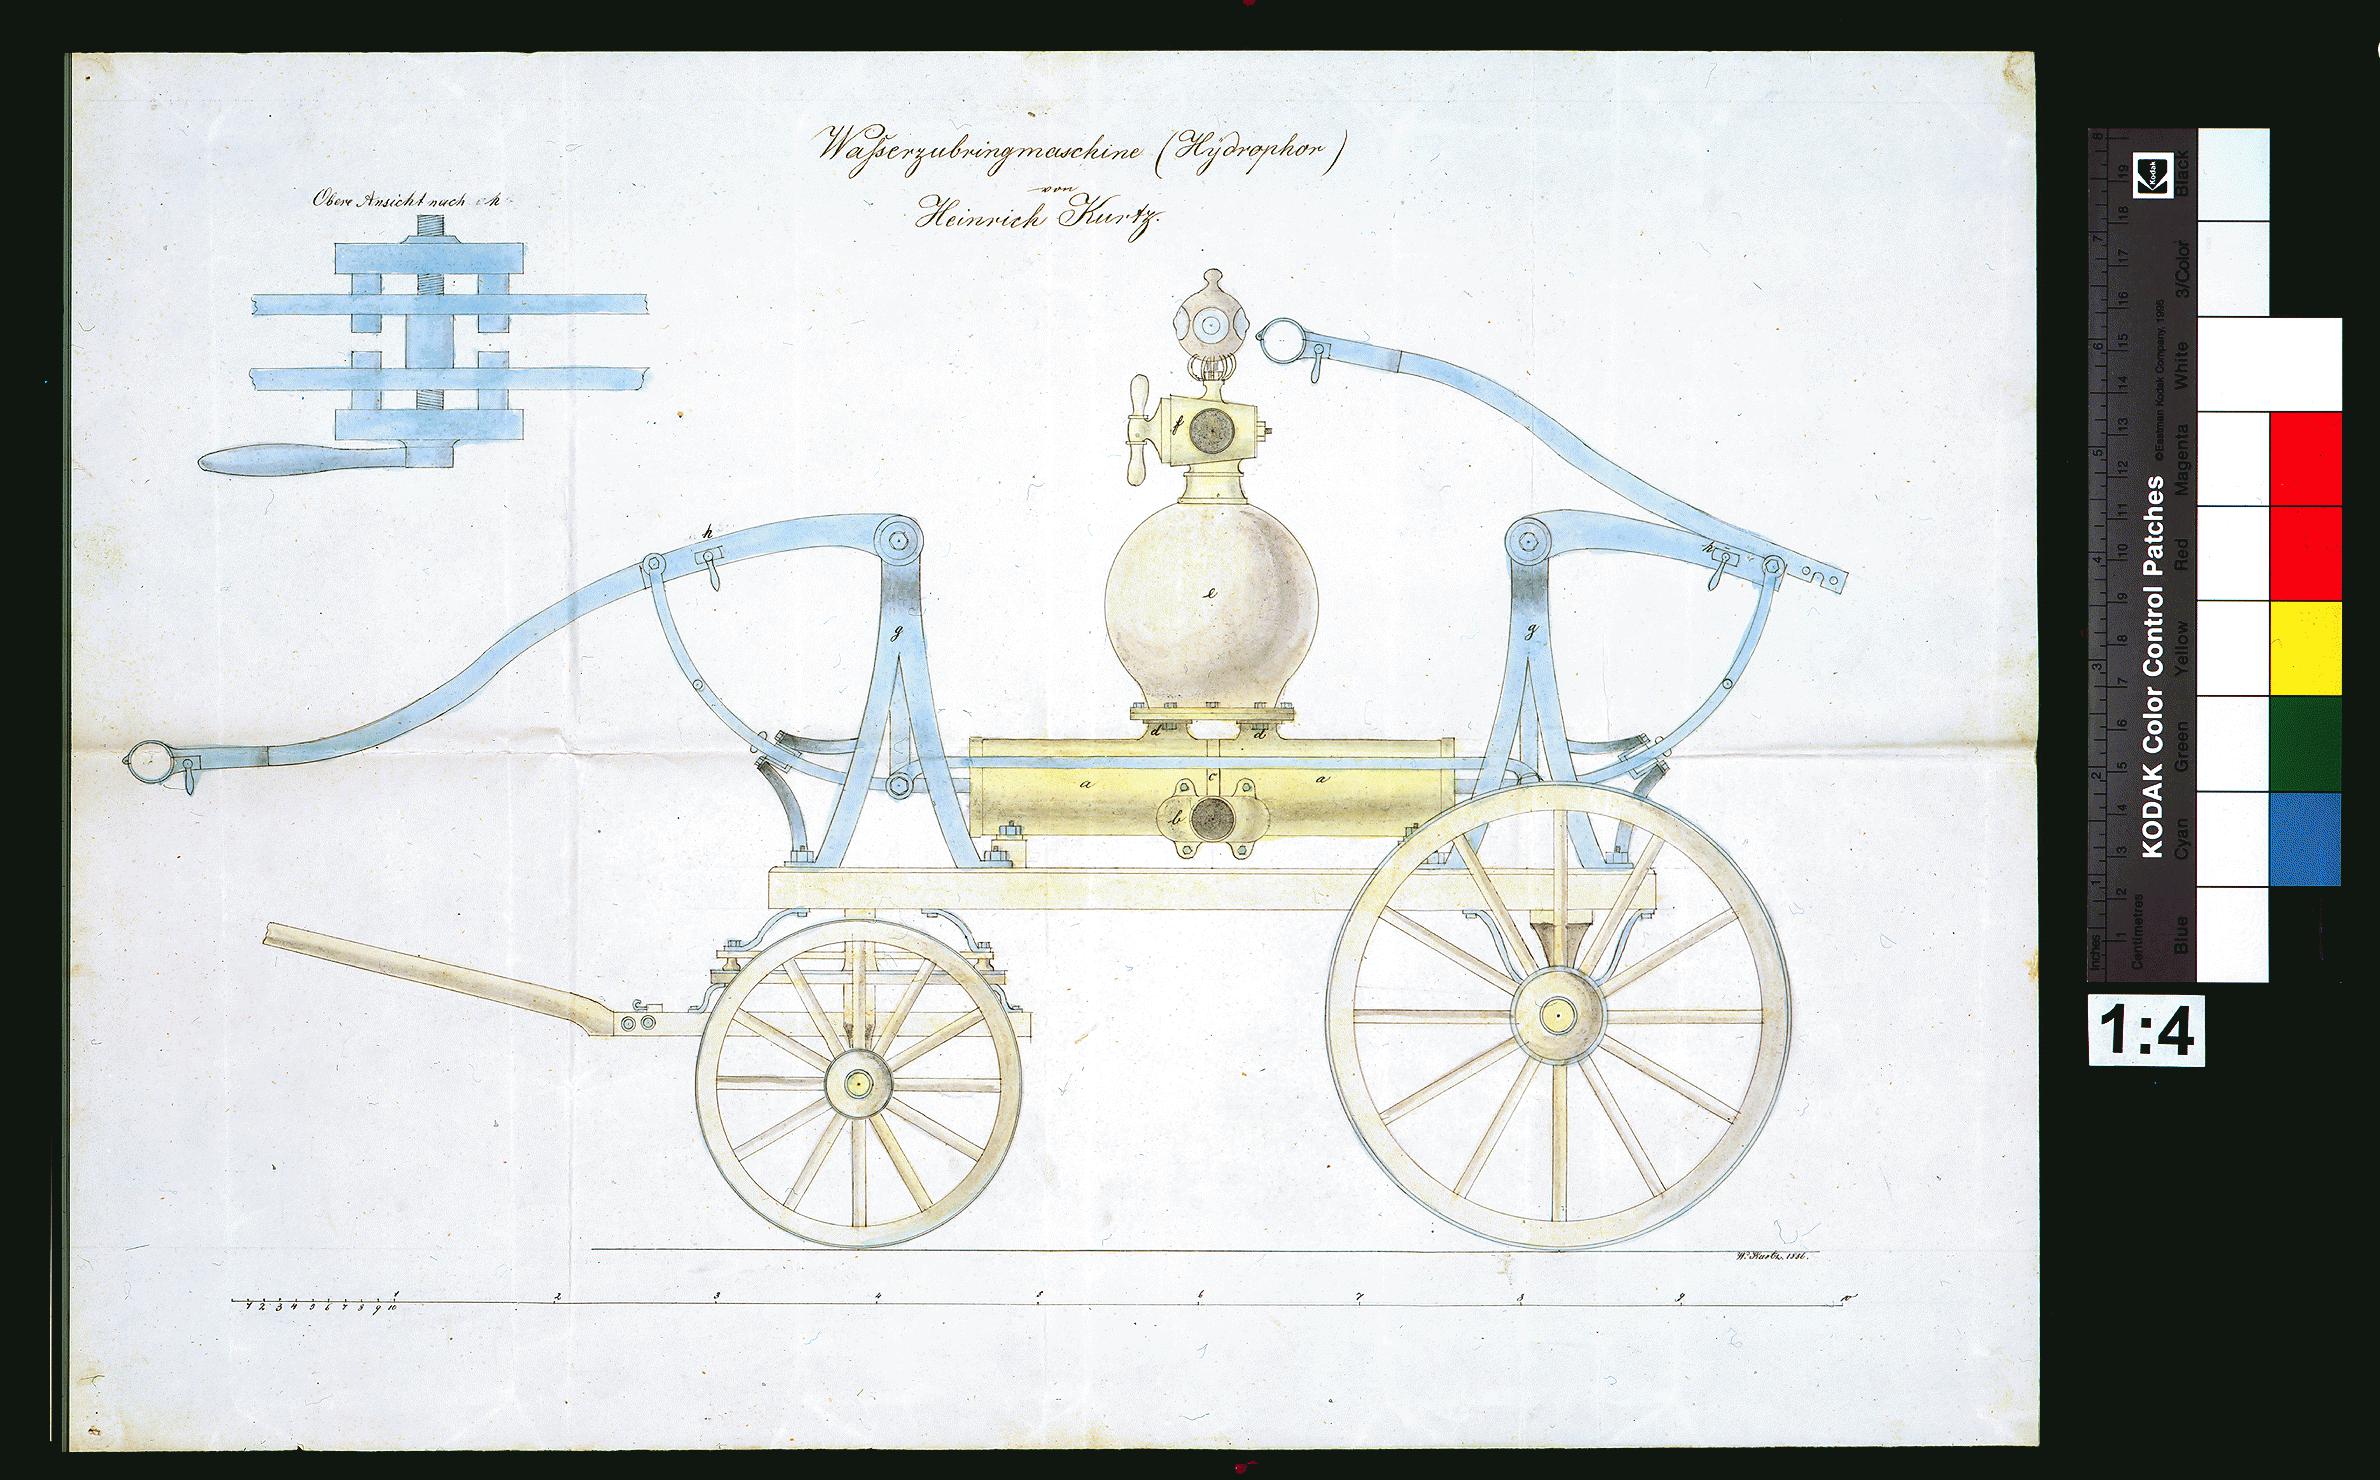 Waſserzubringmaschine (Hydrophor)
von
Heinrich Kurtz.
Obere Ansicht nach h
h
h
f
e
g
g
d
d
a
c
a
b
W. Kurtz. 1886.
1 2 3 4 5 6 7 8 9 10
1 2 3 4 5 6 7 8 9 10
KODAK Color Control Patches
©Eastman Kodak Company, 1995
Kodak
Blue Cyan Green Yellow Red Magenta White 3/Color Black
Inches 1 2 3 4 5 6 7 8
Centimetres 1 2 3 4 5 6 7 8 9 10 11 12 13 14 15 16 17 18 19
1:4